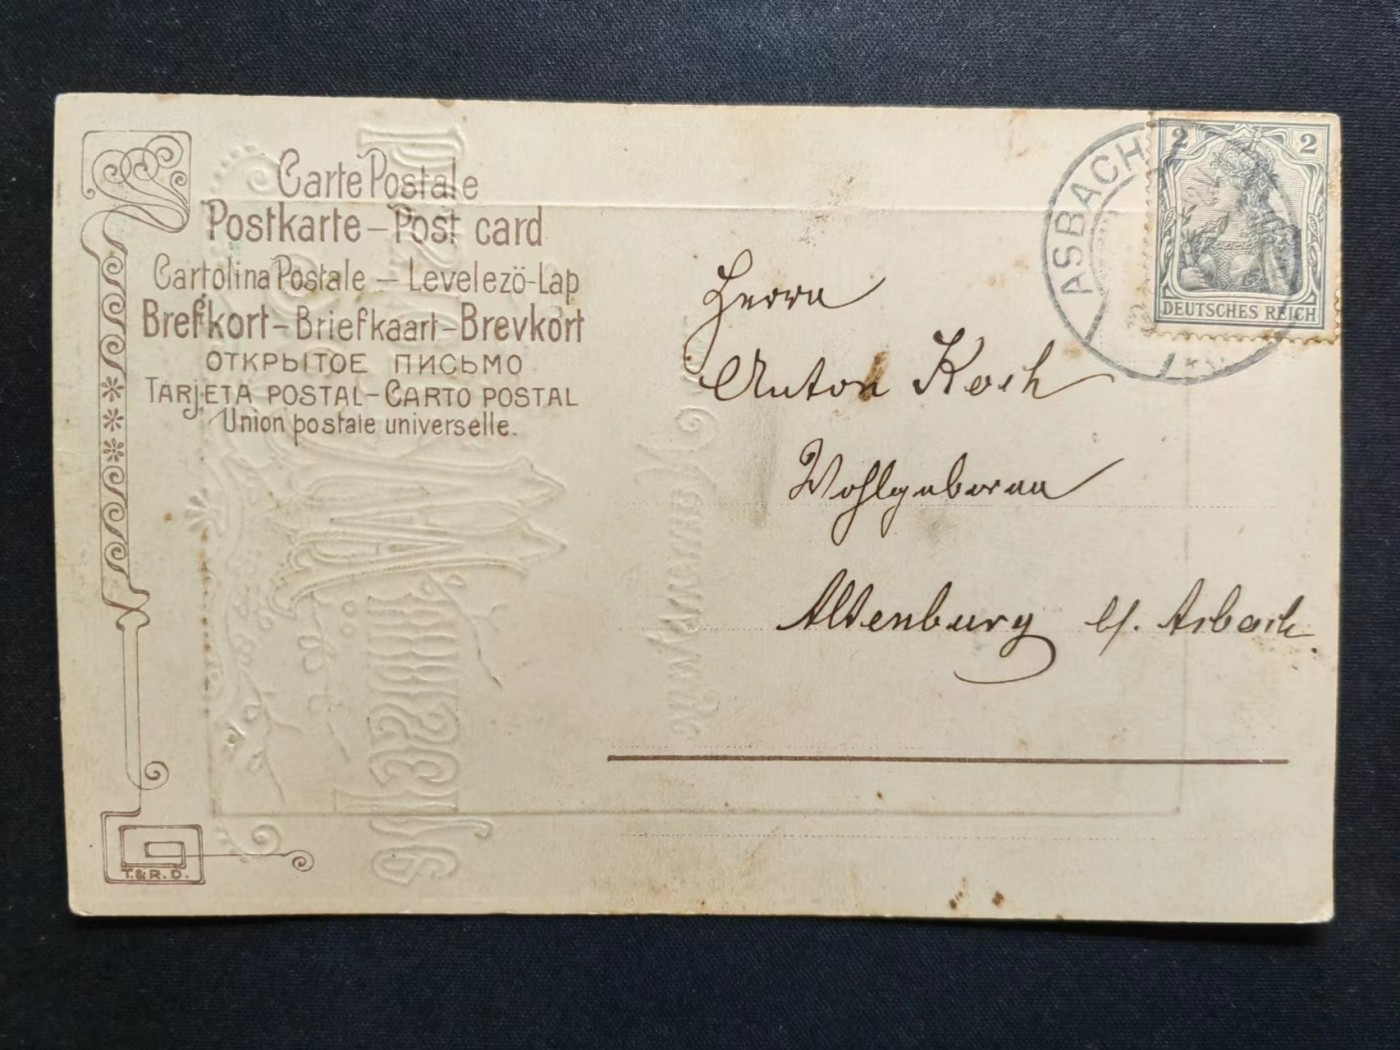 Carte Postale
Postkarte – Post card
Cartolina Postale – Levelező-Lap
Brefkort – Briefkaart – Brevkort
ОТКРЫТОЕ ПИСЬМО
TARJETA POSTAL – CARTO POSTAL
Union postale universelle.
T. & R. D.
ASBACH
2 2
DEUTSCHES REICH
Herrn
Anton Koch
Wohlgeboren
Altenburg b/. Asbach.